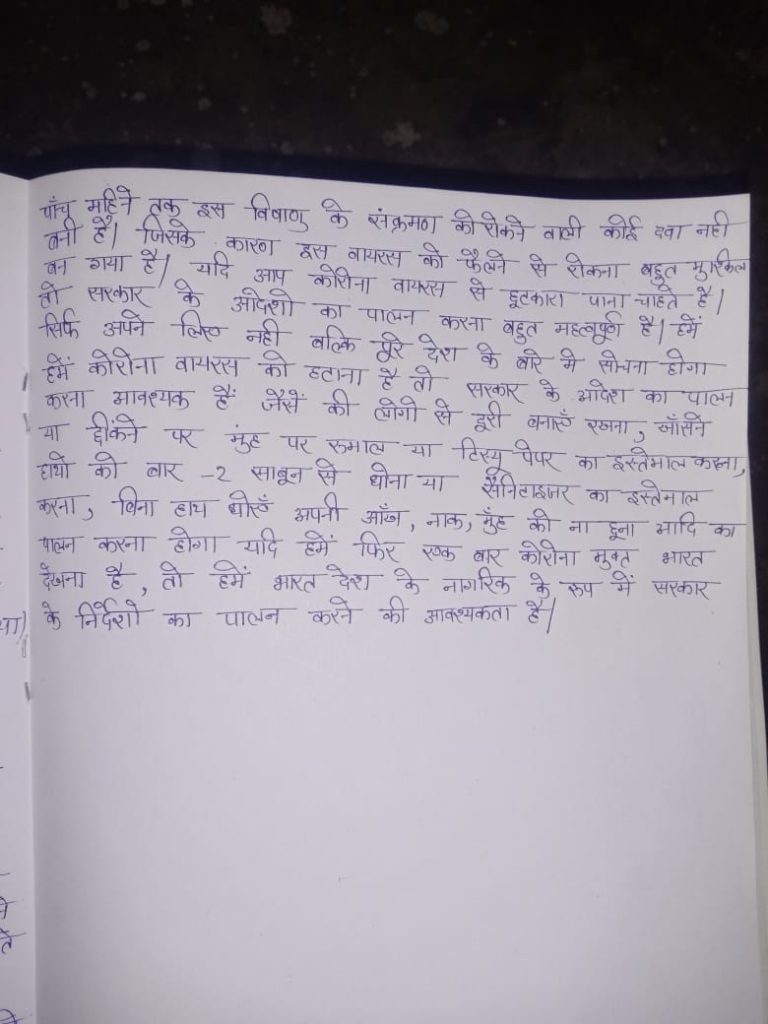 पाँच महिने तक इस विषाणु के संक्रमण को रोकने वाली कोई दवा नही
बनी है। जिसके कारण इस वायरस को फैलने से रोकना बहुत मुश्किल
बन गया है। यदि आप कोरोना वायरस से छूटकारा पाना चाहते है।
तो सरकार के आदेशो का पालन करना बहुत महत्वपूर्ण है। हमें
सिर्फ अपने लिए नही बल्कि पूरे देश के बारे मे सोचना होगा
हमें कोरोना वायरस को हटाना है तो सरकार के आदेश का पालन
करना आवश्यक हैं जैसें की लोगो से दूरी बनाएँ रखना, खाँसने
या छींकने पर मुंह पर रूमाल या टिस्यू पेपर का इस्तेमाल करना,
हाथो को बार -2 साबून से धोना या सैनिटाइजर का इस्तेमाल
करना, बिना हाथ धोएँ अपनी आँख, नाक, मुँह को ना छूना आदि का
पालन करना होगा यदि हमें फिर एक बार कोरोना मुक्त भारत
देखना है, तो हमें भारत देश के नागरिक के रूप में सरकार
के निर्देशो का पालन करने की आवश्यकता है।